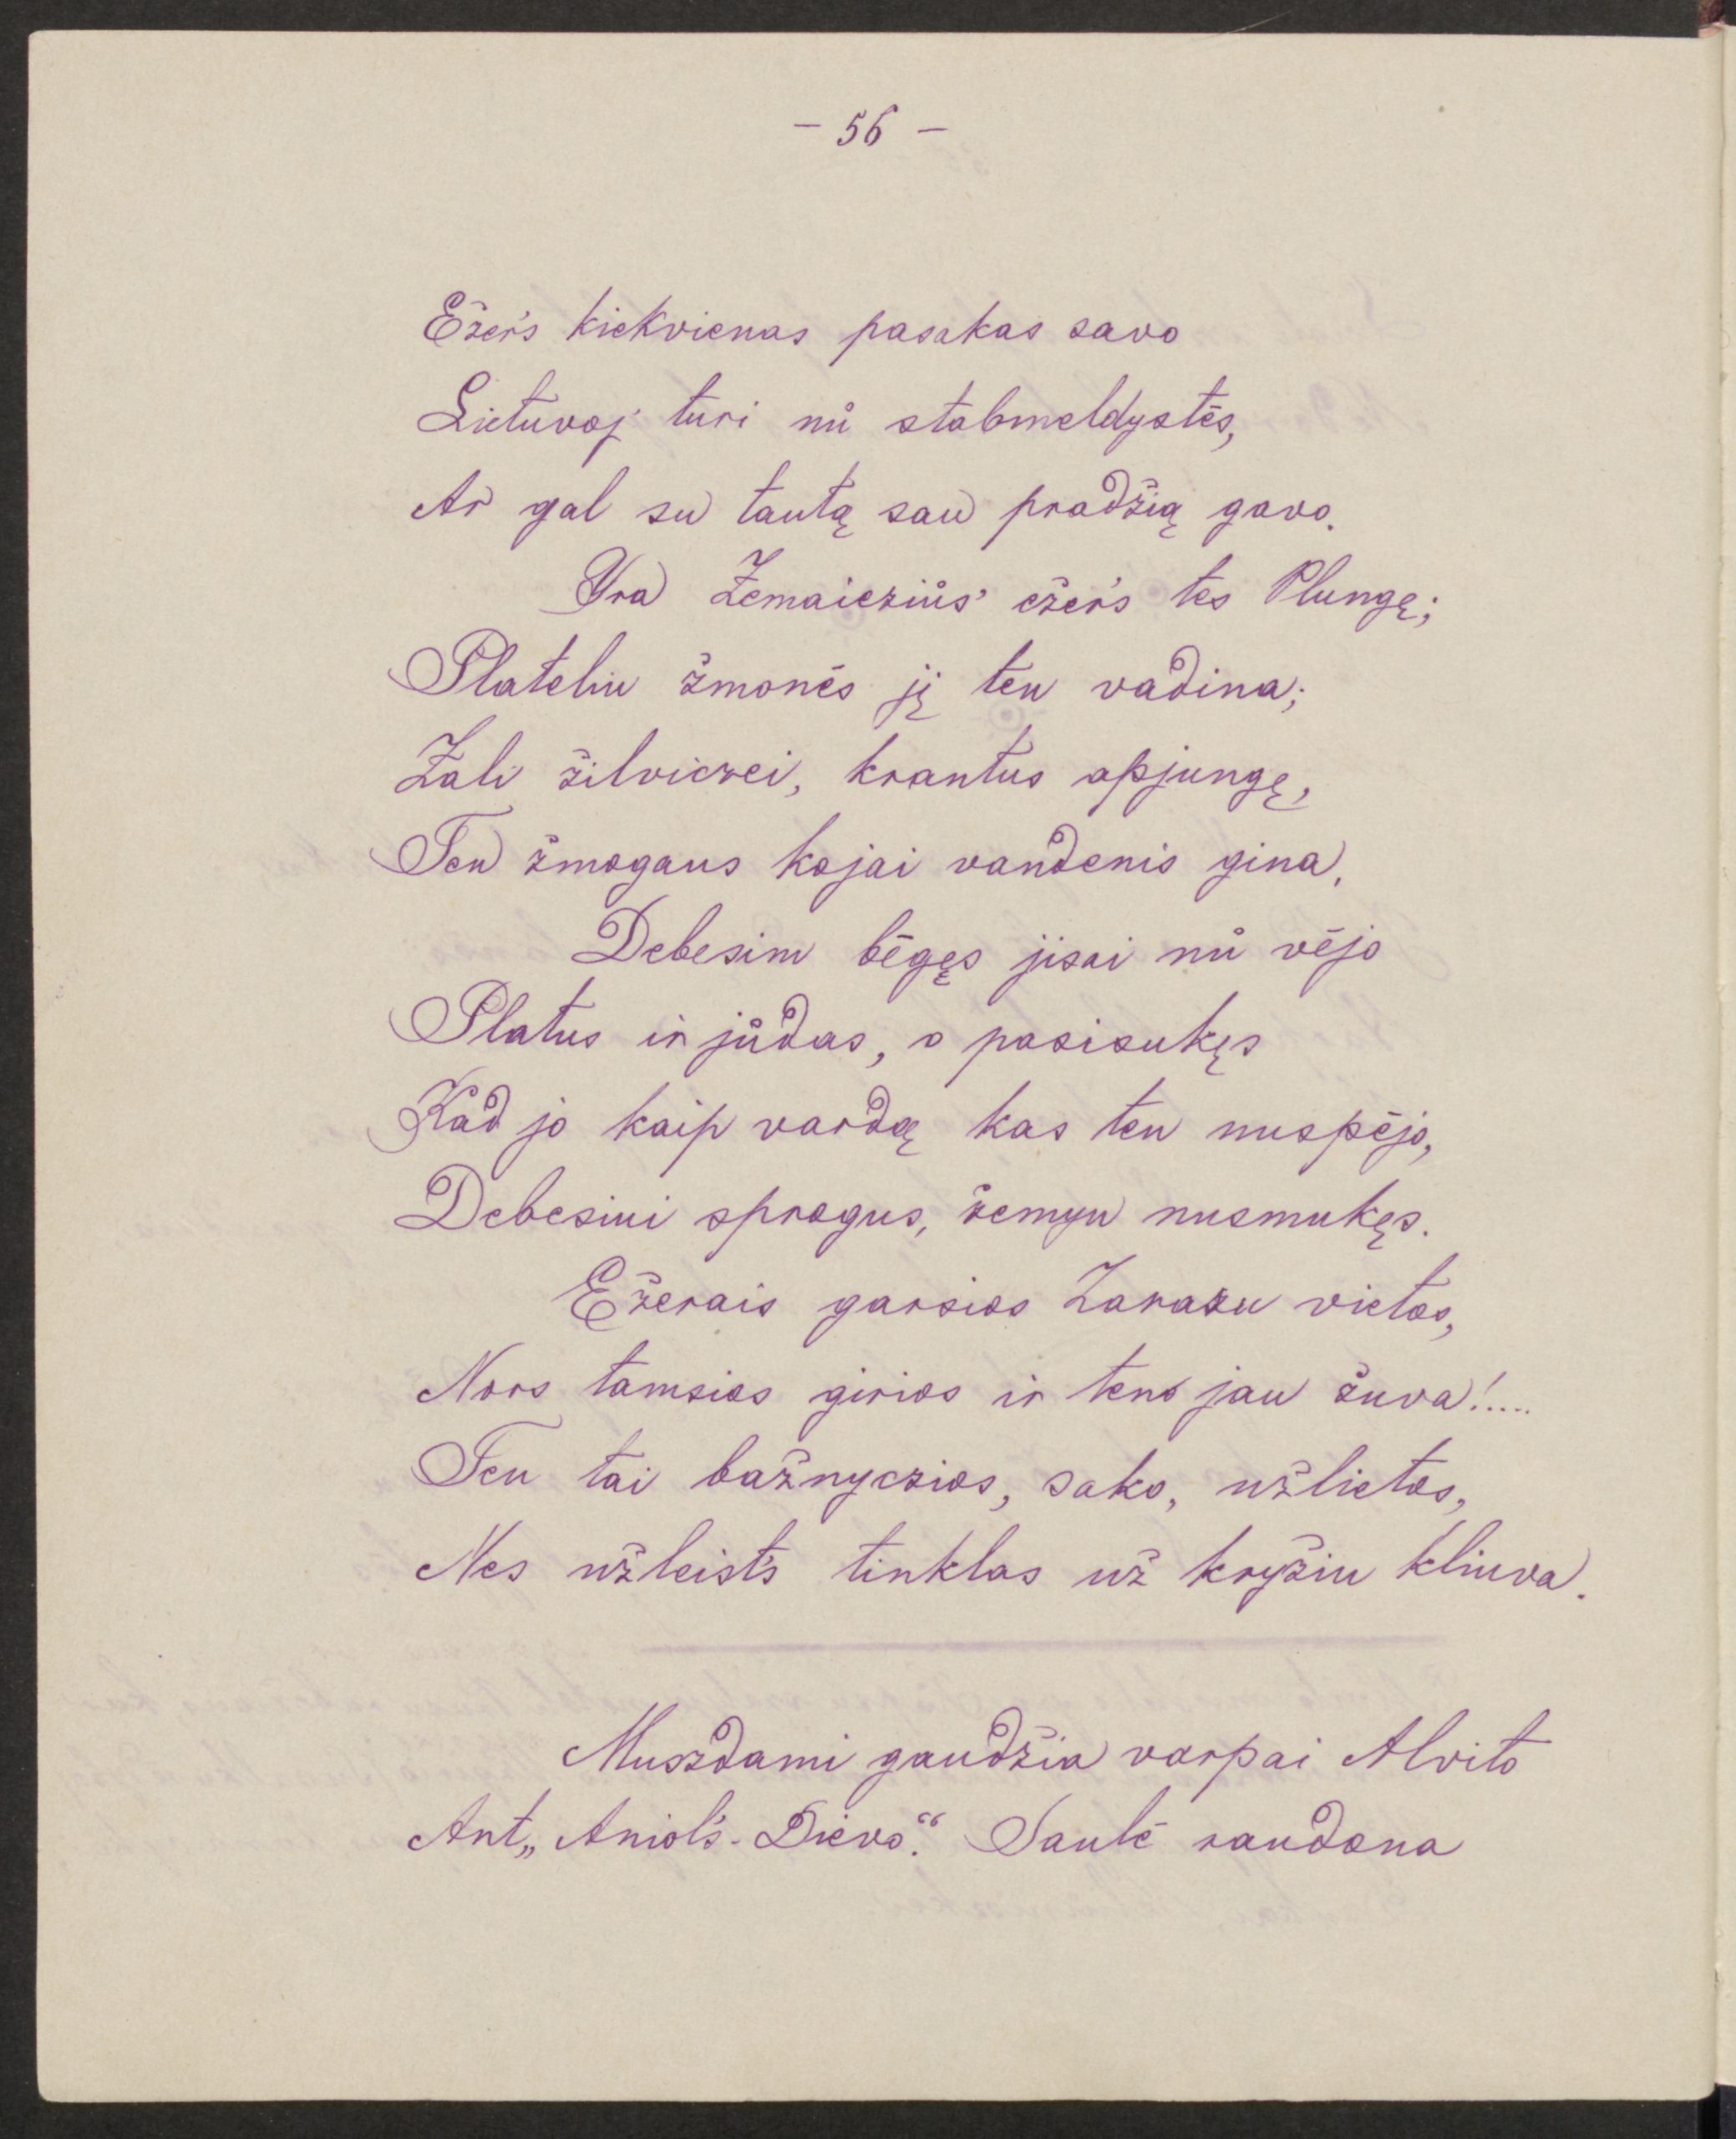 - 56 -
Ežer's kiekvienas pasakas savo
Lietuvoj' turi nů stabmeldystės,
Ar gal su tautą sau pradžią gavo.
Yra Žemaicziůs' ežer's tes Plungę;
Plateliu žmonės jį ten vadina;
Žali žilviczei, krantus apjungę,
Ten žmogaus kojai vandenis gina.
Debesim bėgęs jisai nů vėjo
Platus ir jůdas, o pasisukęs
Kad jo kaip vardą kas ten nuspėjo,
Debesiui sprogus, žemyn nusmukęs.
Ežerais garsios Zarasu vietos,
Nors tamsios girios ir tens jau žuva!....
Ten tai bažnyczios, sako, užlietos,
Nes užleist's tinklas už kryžiu kliuva.
Muszdami gaudžia varpai Alvito
Ant „Aniol's-Dievo“. Saulė raudona